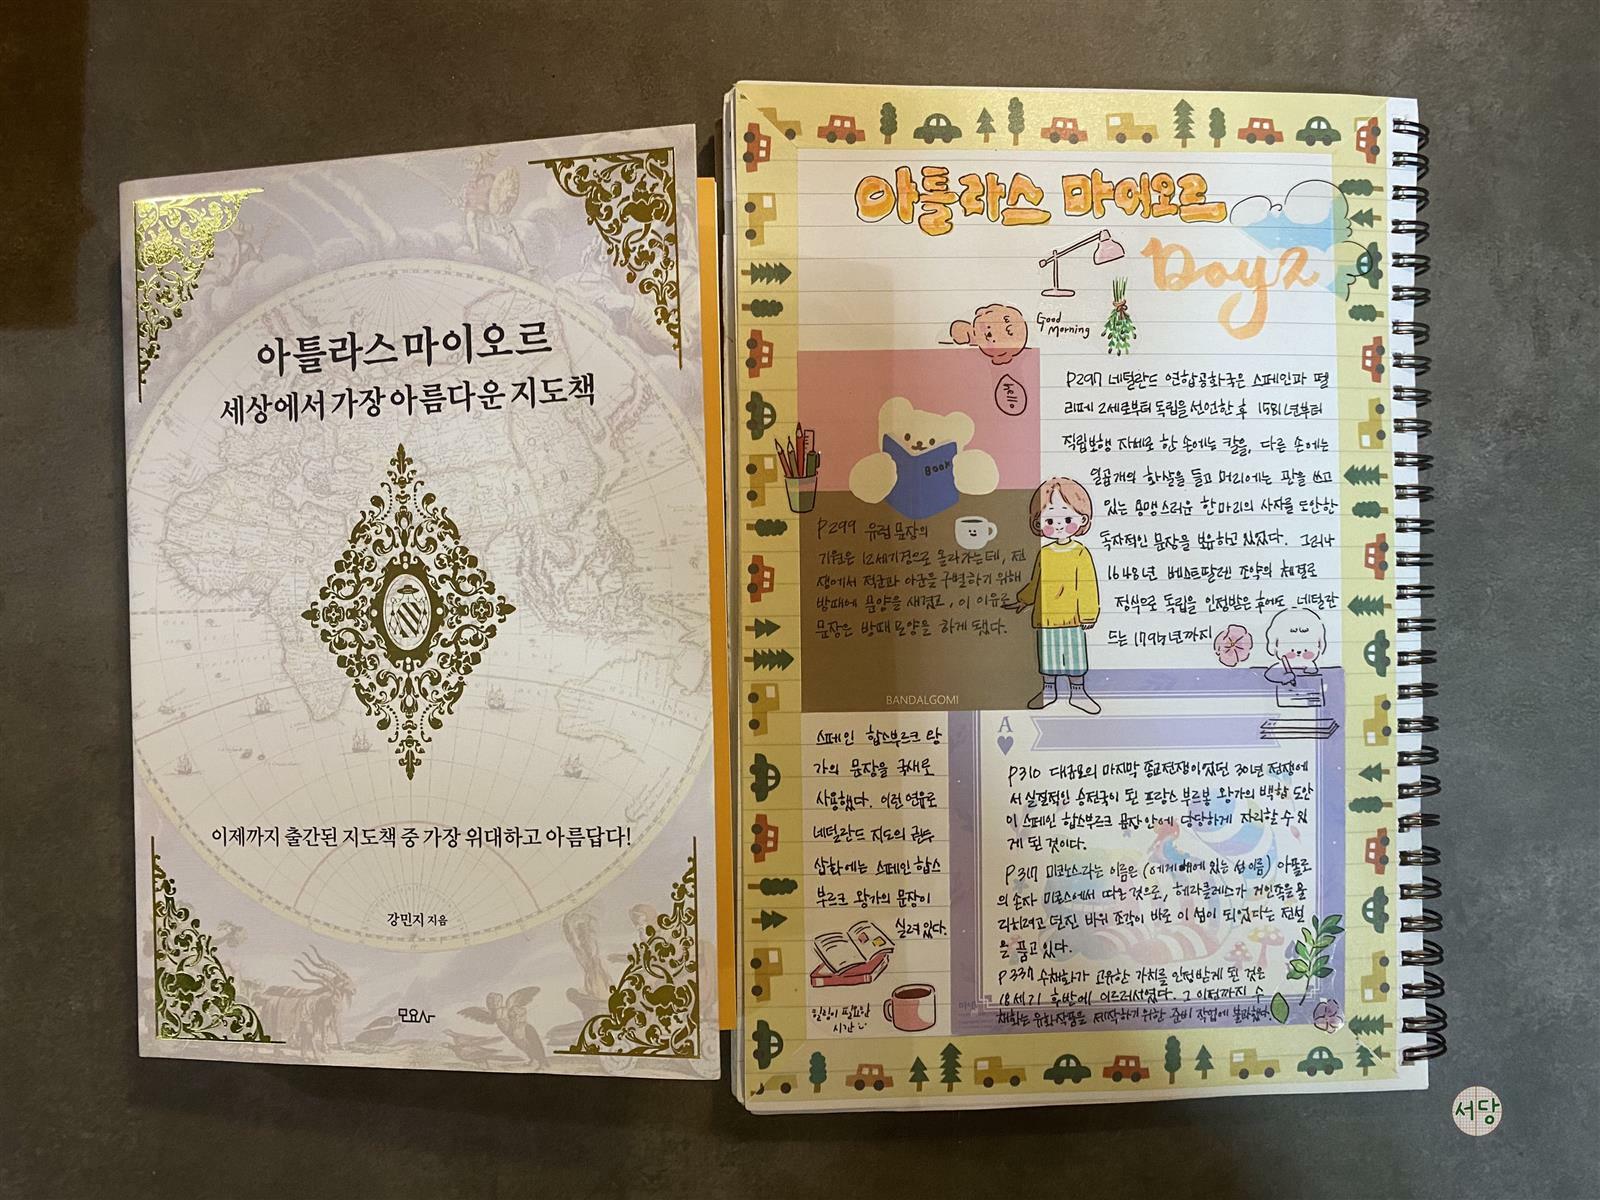 아틀라스 마이오르
세상에서 가장 아름다운 지도책
이제까지 출간된 지도책 중 가장 위대하고 아름답다!
강민지 지음
모요사
아틀라스 마이오르
Day 2
Good
Morning
BOOK
P297 네덜란드 연합공화국은 스페인과 펠
리페 2세로부터 독립을 선언한 후 1581년부터
직립보행 자세로 한 손에는 칼을, 다른 손에는
열곱개의 화살을 들고 머리에는 관을 쓰고
있는 용맹스러운 한마리의 사자를 도안한
독자적인 문장을 보유하고 있었다. 그러나
1648년 베스트팔렌 조약의 체결로
정식으로 독립을 인정받은 후에도 네덜란
드는 1795년까지
P299 유럽 문장의
기원은 12세기경으로 올라가는데, 전
쟁에서 적군과 아군을 구별하기 위해
방패에 문양을 새겼고, 이 이유로
문장은 방패모양을 하게 됐다.
BANDALGOMI
스페인 합스부르크 왕
가의 문장을 국새로
사용했다. 이런 연유로
네덜란드 지도의
삽화에는 스페인 합스
부르크 왕가의 문장이
실려있다.
힐링이 필요한
시간
A
P310 대규모의 마지막 종교전쟁이었던 30년 전쟁에
서 실질적인 승전국이 된 프랑스 부르봉 왕가의 백합 도안
이 스페인 합스부르크 문장안에 당당하게 자리할 수 있
게 된 것이다.
P317 미코노스라는 이름은 (에게해에 있는 섬 이름) 아폴로
의 손자 미코스에서 따온 것으로, 헤라클레스가 거인족을 물
리치려고 던진 바위 조각이 바로 이 섬이 되었다는 전설
을 품고 있다.
P337 수채화가 고유한 가치를 인정받게 된 것은
18세기 후반에 이르러서였다. 그 이전까지 수
채화는 유화작품을 제작하기 위한 준비 작업에 불과했다.
서당